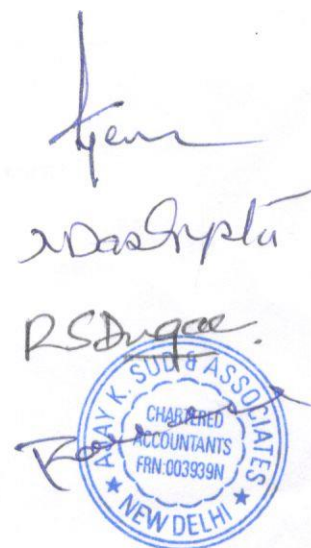 NDasGupta
RSDugae.
AJAY K. SUD & ASSOCIATES
CHARTERED
ACCOUNTANTS
FRN:003939N
★ NEW DELHI ★